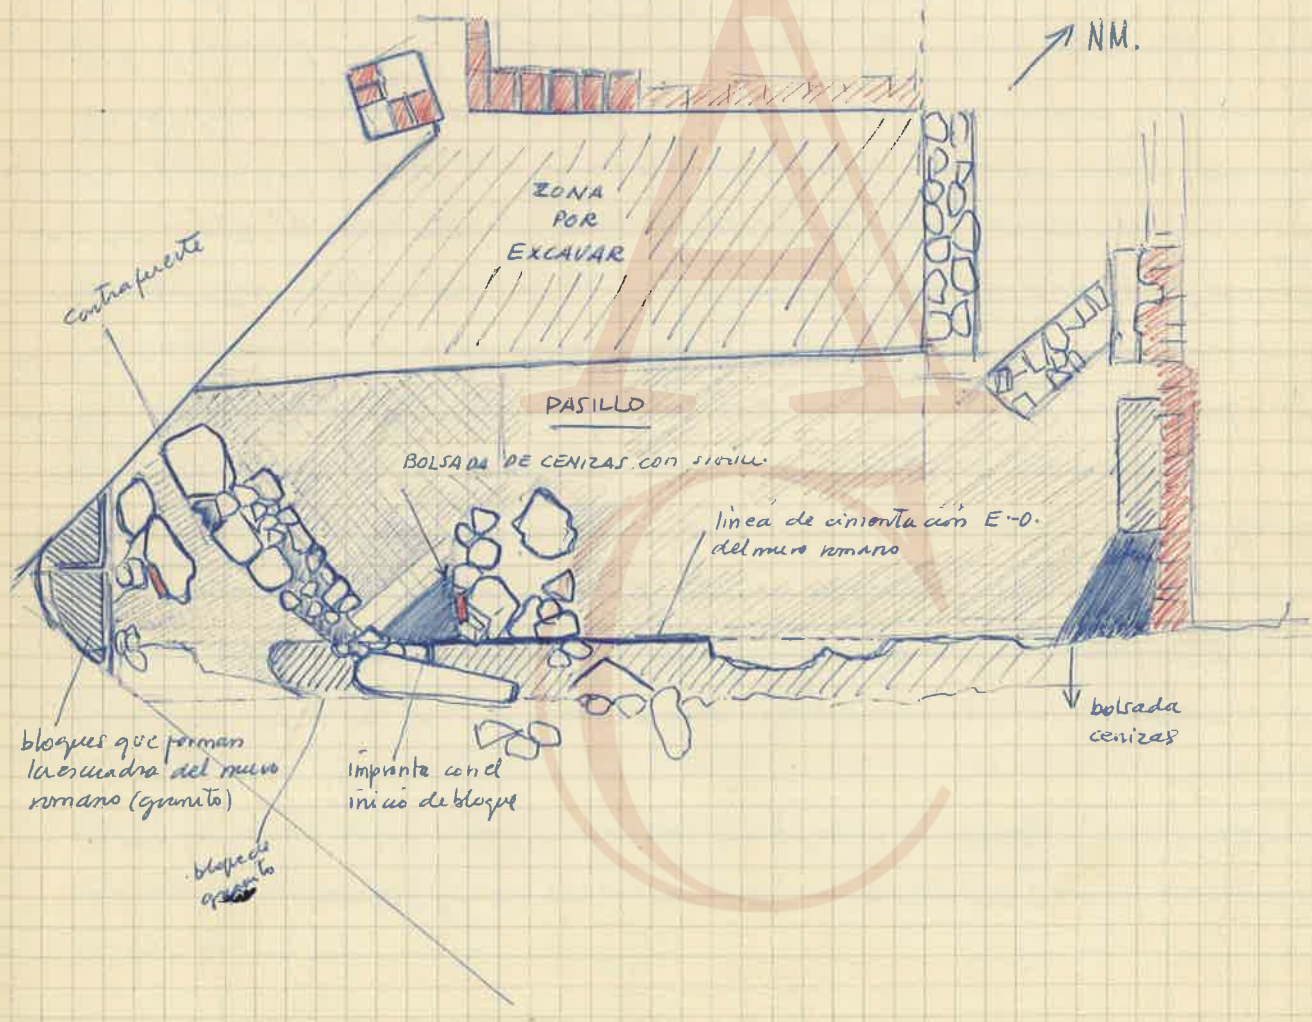 NM.
ZONA
POR
EXCAVAR
contrafuerte
PASILLO
BOLSADA DE CENIZAS con
línea de cimentación E.-O.
del muro romano
bloques que forman
la escuadra del muro
romano (granito)
impronta con el
inicio de bloque
bolsada
cenizas
bloque de
granito